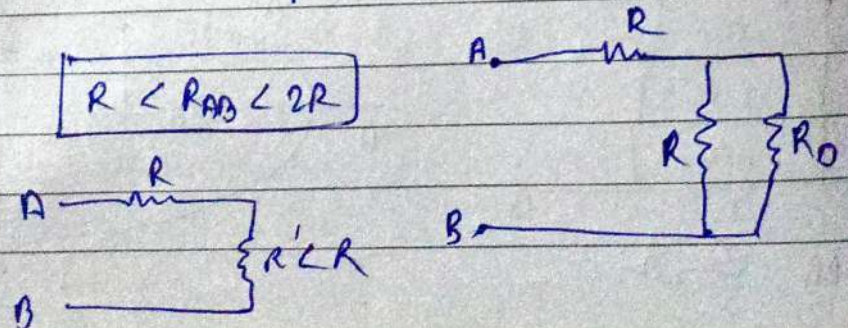 R < R_AB < 2R
A R
R R_0
B
A R
R' < R
B